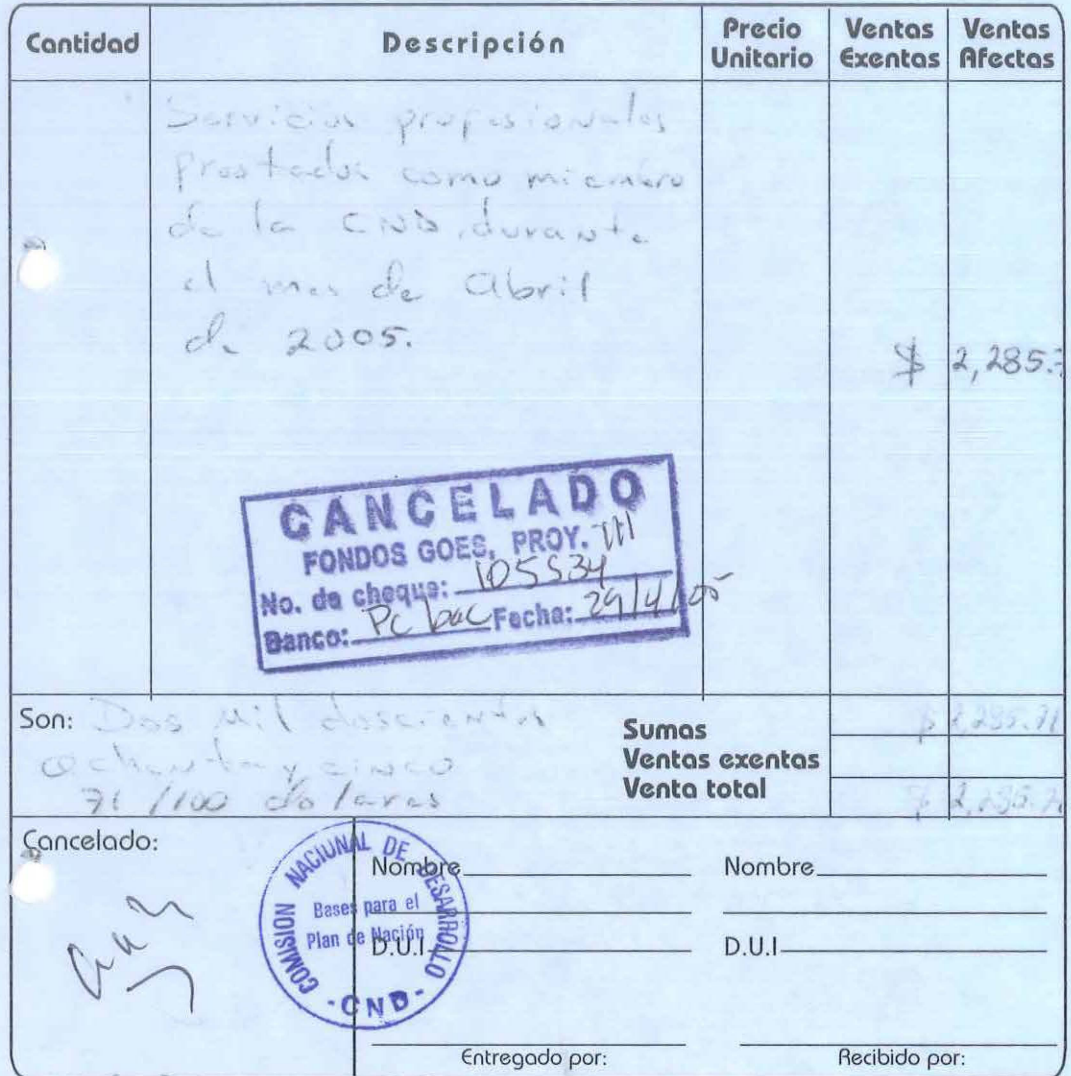 Cantidad Descripción Precio Unitario Ventas Exentas Ventas Afectas
Servicios profesionales
Prestados como miembro
de la CND, durante
el mes de Abril
de 2005.
$ 2,285.7
CANCELADO
FONDOS GOES, PROY. 711
No. de cheque: 105534
Banco: Pc bac Fecha: 29/4/05
Son: Dos Mil doscientos
Ochenta y cinco
71/100 dolares
Sumas $ 2,285.71
Ventas exentas
Venta total $ 2,285.7
Cancelado:
COMISION NACIONAL DE DESARROLLO
Bases para el
Plan de Nación
-CND-
Nombre Nombre
D.U.I D.U.I
Entregado por: Recibido por: